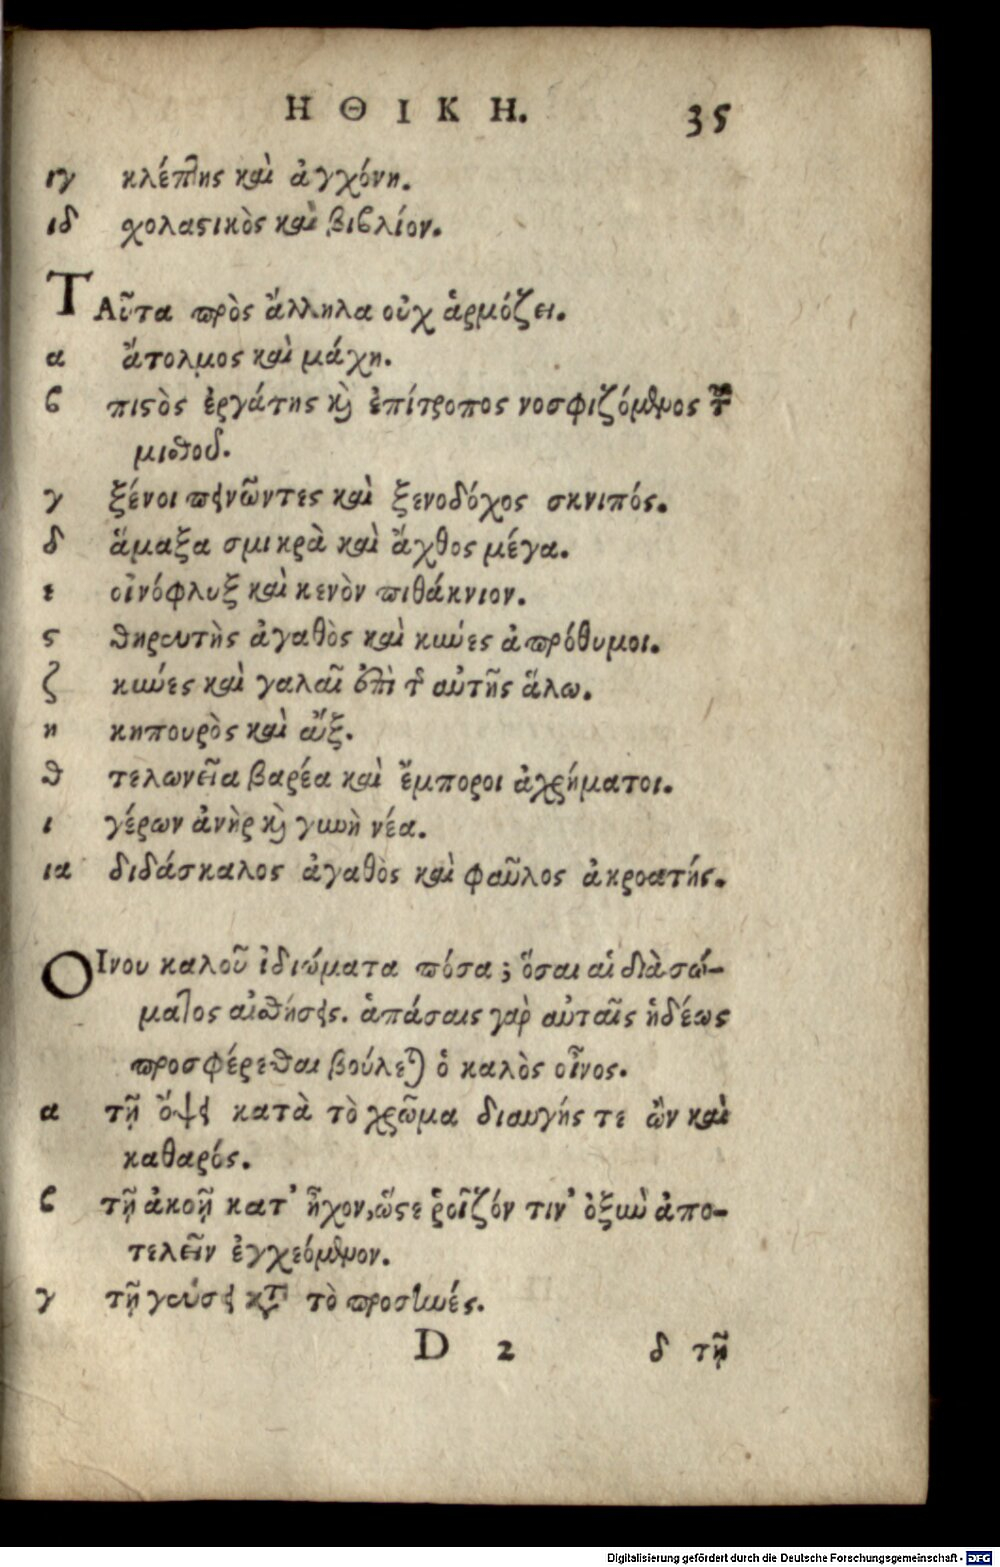 ΗΘΙΚΗ. 35
ιγ κλέπτης καὶ ἀγχόνη.
ιδ χολαϛικὸς καὶ βιβλίον.
ΤΑῦτα πρὸς ἄλληλα οὐχ ἁρμόζει.
α ἄτολμος καὶ μάχη.
β πιϛὸς ἐργάτης καὶ ἐπίτροπος νοσφιζόμενος τὸν
μισθοῦ.
γ ξένοι πεινῶντες καὶ ξενοδόχος σκνιπός.
δ ἅμαξα σμικρὰ καὶ ἄχθος μέγα.
ε οἰνόφλυξ καὶ κενὸν πιθάκνιον.
ϛ θηρευτὴς ἀγαθὸς καὶ κύνες ἀπρόθυμοι.
ζ κύνες καὶ γαλαῖ ἐπὶ τ αὐτῆς ἅλω.
η κηπουρὸς καὶ αἴξ.
θ τελωνεῖα βαρέα καὶ ἔμποροι ἀχρήματοι.
ι γέρων ἀνὴρ καὶ γυνὴ νέα.
ια διδάσκαλος ἀγαθὸς καὶ φαῦλος ἀκροατής.
ΟΙνου καλοῦ ἰδιώματα πόσα; ὅσαι αἱ διὰ σώ-
ματος αἰσθήσεις. ἁπάσαις γὰρ αὐταῖς ἡδέως
προσφέρεσθαι βούλεται ὁ καλὸς οἶνος.
α τῇ ὄψει κατὰ τὸ χρῶμα διαυγής τε ὢν καὶ
καθαρός.
β τῇ ἀκοῇ κατ' ἦχον, ὥϛε ῥοῖζόν τιν' ὀξὺν ἀπο-
τελεῖν ἐγχεόμενον.
γ τῇ γεύσει κατὰ τὸ προσηνές.
D 2 δ τῇ
Digitalisierung gefördert durch die Deutsche Forschungsgemeinschaft - DFG